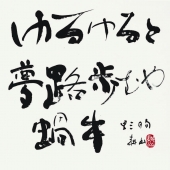 ゆるゆると
夢路歩むや
蝸牛